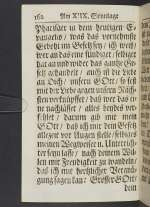 162 Am XIX. Sonntage
Pharisäer in dem heutigen E-
vangelio, was das vornehmste
Geboht im Gesetz sey / ich weiß /
wer an das eine sündiget / sündiget
hat an und wider das gantze Ge-
setz gehandelt / auch ist die Liebe
zu Dich / unsern GOtt / so fest
mit der Liebe gegen unsern Näch-
sten verknüpffet / daß wer das ei-
ne nachlässet / alles beydes ver-
lihret / darum gib mir mein
GOtt / daß ich mit dem Gesetz
allezeit vor Augen stelle / selbiges
meinen Wegweiser u. Unterrich-
ter seyn lasse / nach deinem Wil-
len mit Freudigkeit zu wandeln /
daß ich mit hertzlicher Vergnü-
gung sagen kan: Grosser GOtt /
dein